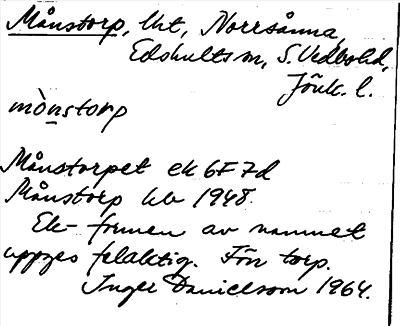 Månstorp, lht, Norrsånna,
Edshults sn, S. Vedbo hd,
Jönk. l.
mònstorp
Månstorpet ek 6F7d
Månstorp hb 1948.
Ek-formen av namnet
uppges felaktig. Förr torp.
Inger Danielsson 1964.